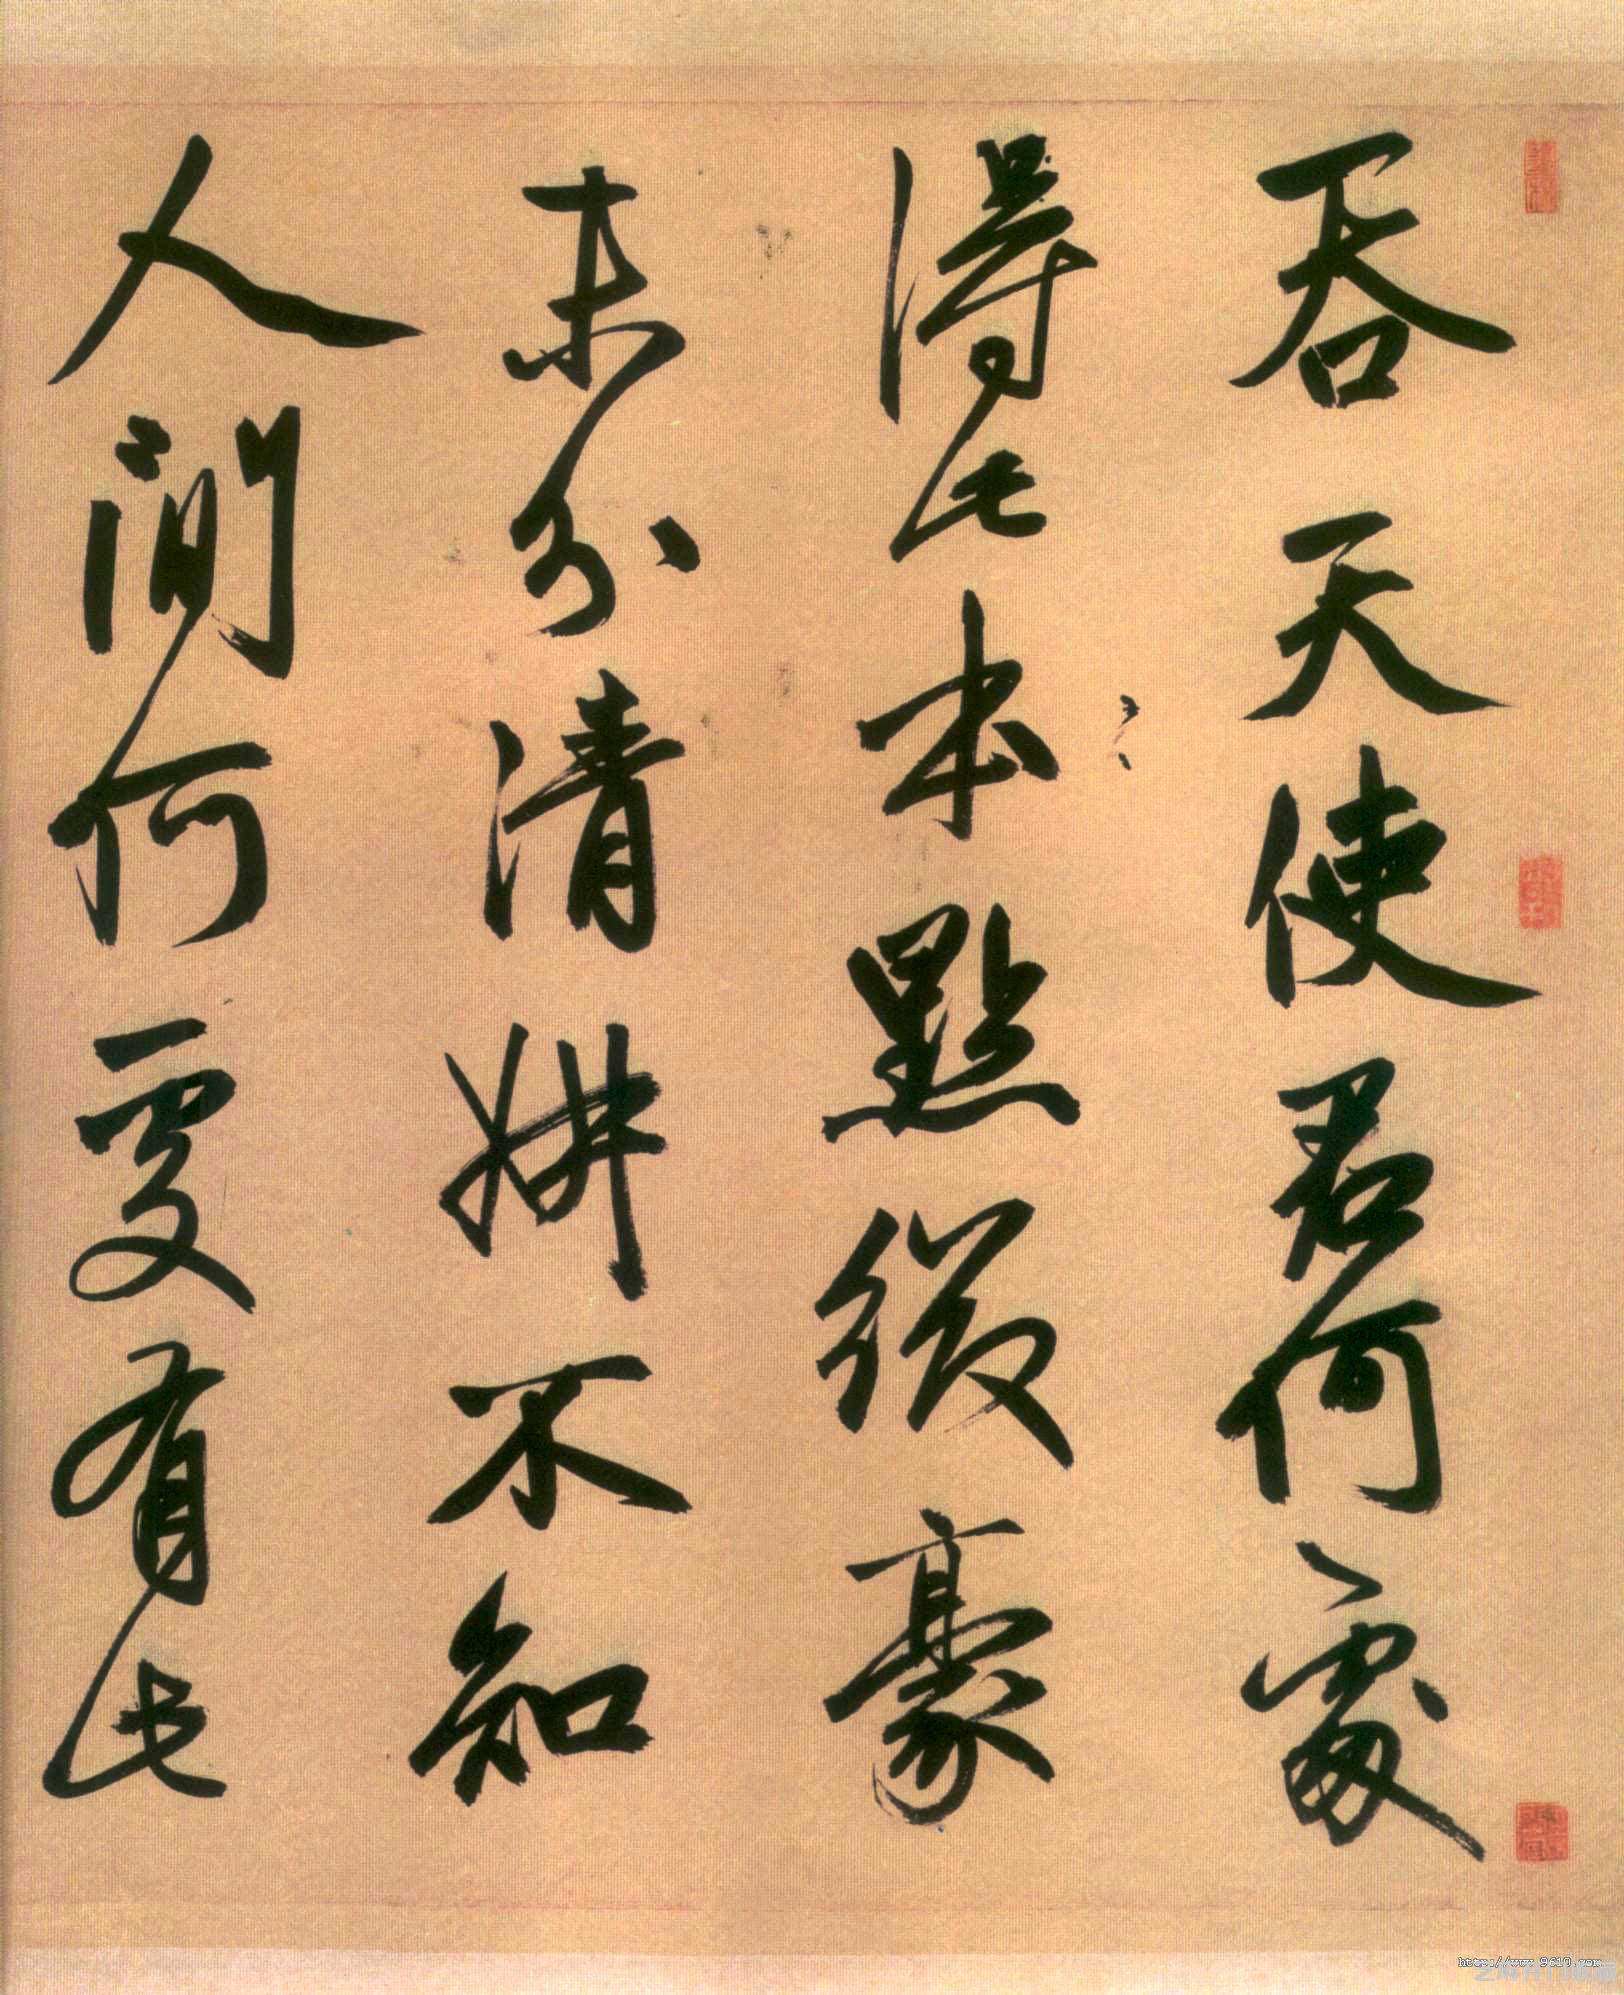 吞天使君何處
得此本點綴豪
末分清妍不知
人間何處有此
http://www.9610.com